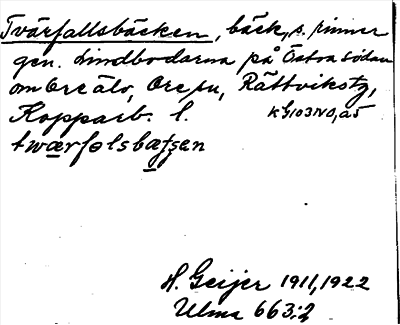 Tvärfallsbäcken, bäck, s. rinner
gen. Lindbodarna på Östra sidan
om Ore älv, Ore sn, Rättvikstg,
Kopparb. l. KG103NO, a5
twærfəlsbætʃən
H. Geijer 1911, 1922
Ulma 663:2